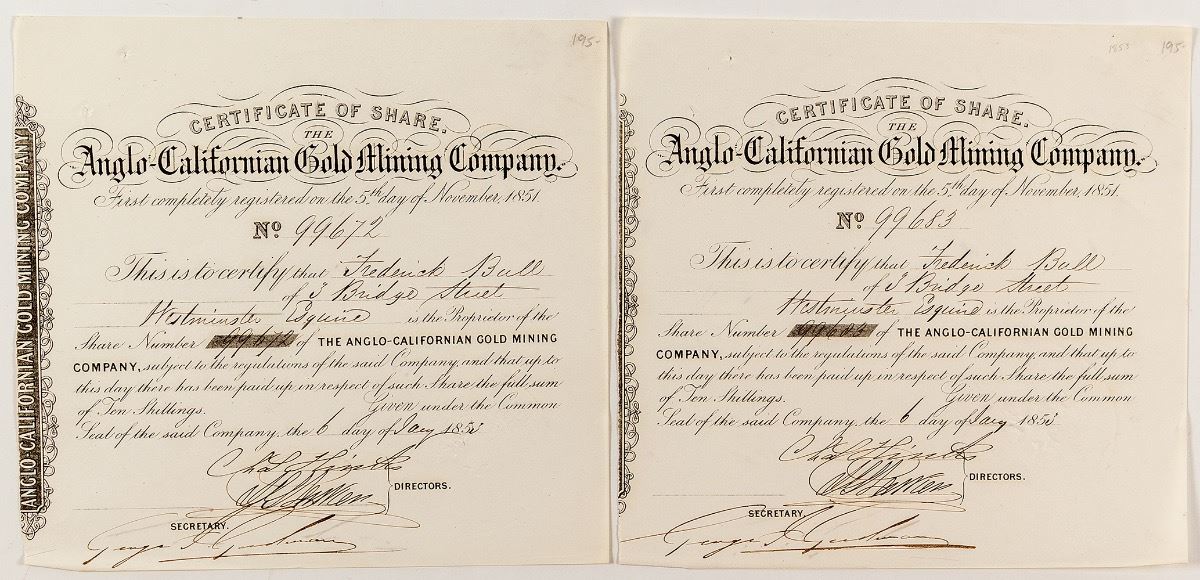 195-
CERTIFICATE OF SHARE.
THE
Anglo-Californian Gold Mining Company.
First completely registered on the 5th day of November, 1851.
No 99672
This is to certify that Frederick Bull
of 3 Bridge Street
Westminster Esquire is the Proprietor of the
Share Number 99672 of THE ANGLO-CALIFORNIAN GOLD MINING
COMPANY, subject to the regulations of the said Company, and that up to
this day there has been paid up in respect of such Share the full sum
of Ten Shillings. Given under the Common
Seal of the said Company, the 6 day of Jany 1853
DIRECTORS.
SECRETARY.
ANGLO-CALIFORNIAN GOLD MINING COMPANY
1853 195-
CERTIFICATE OF SHARE.
THE
Anglo-Californian Gold Mining Company.
First completely registered on the 5th day of November, 1851.
No 99683
This is to certify that Frederick Bull
of 3 Bridge Street
Westminster Esquire is the Proprietor of the
Share Number of THE ANGLO-CALIFORNIAN GOLD MINING
COMPANY, subject to the regulations of the said Company, and that up to
this day there has been paid up in respect of such Share the full sum
of Ten Shillings. Given under the Common
Seal of the said Company, the 6 day of Jany 1853
DIRECTORS.
SECRETARY.